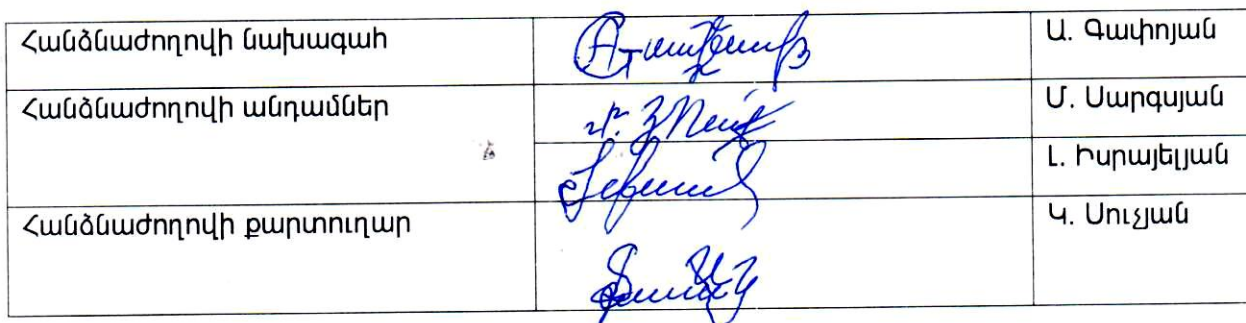 Հանձնաժողովի նախագահ
Ա. Գափոյան
Հանձնաժողովի անդամներ
Մ. Սարգսյան
Լ. Իսրայելյան
Հանձնաժողովի քարտուղար
Կ. Սուչյան